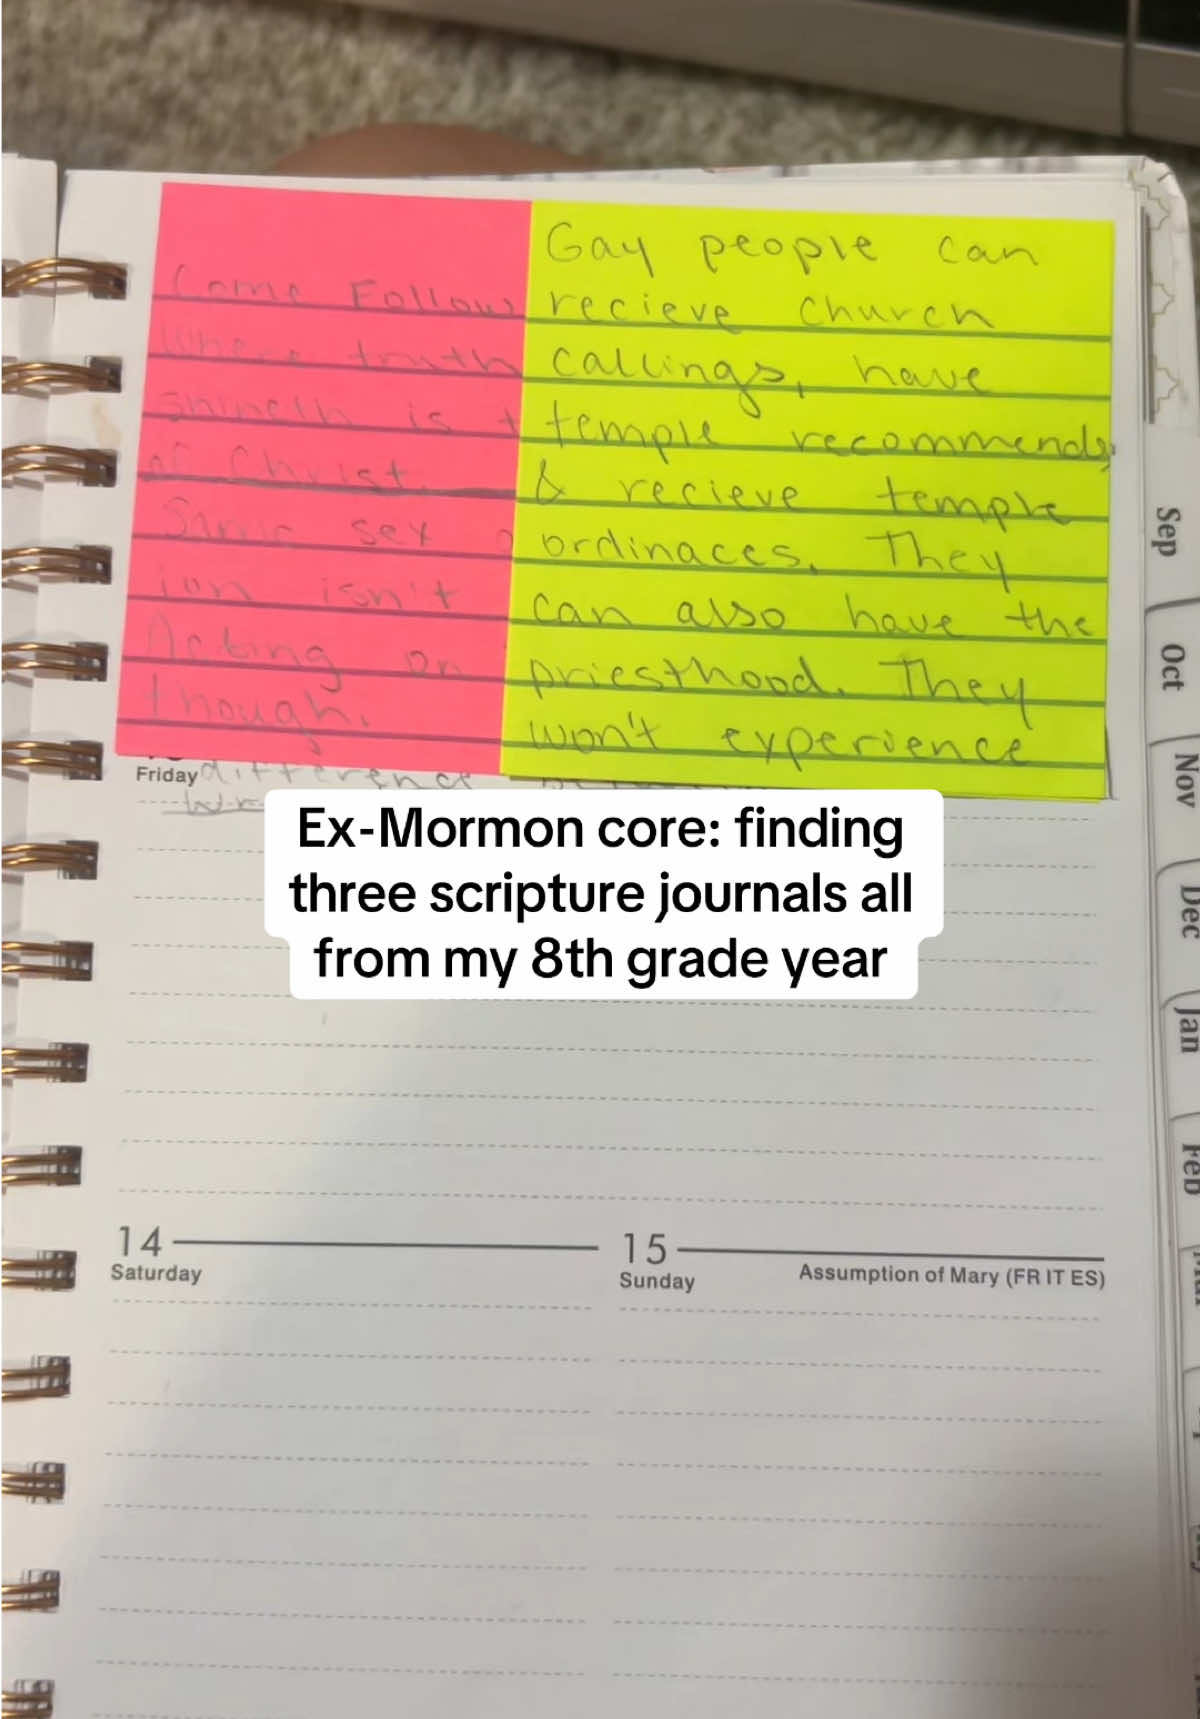 Come Follow
Where truth
shineth is
of Christ.
Same sex
ion isn't
Acting on
though.
Gay people can
recieve church
callings, have
temple recommends
& recieve temple
ordinaces. They
can also have the
priesthood. They
won't experience
Friday difference
Ex-Mormon core: finding
three scripture journals all
from my 8th grade year
14
Saturday
15
Sunday
Assumption of Mary (FR IT ES)
Sep
Oct
Nov
Dec
Jan
Feb